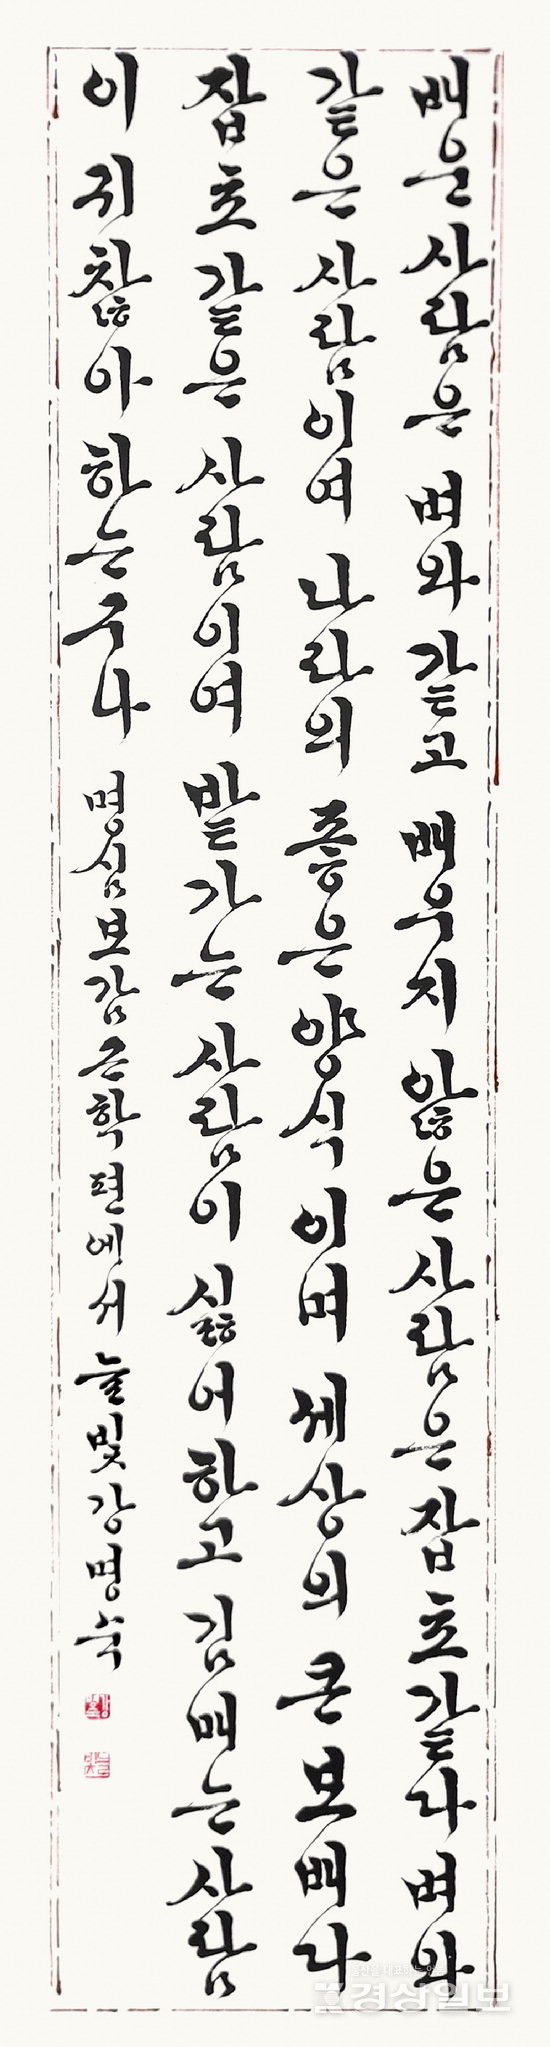 배운 사람은 벼와 같고 배우지 않은 사람은 잡초같다 벼와
같은 사람이여 나라의 좋은 양식이며 세상의 큰 보배라
잡초 같은 사람이여 밭 가는 사람이 싫어하고 김매는 사람
이 귀찮아 하는구나 명심보감 근학편에서 늘빛 강명숙
경상일보